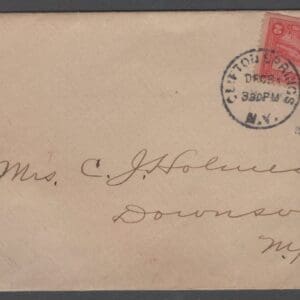 CLIFTON SPRINGS
DEC
330PM
N.Y.
2
Mrs. C. J. Holmes
Downsv